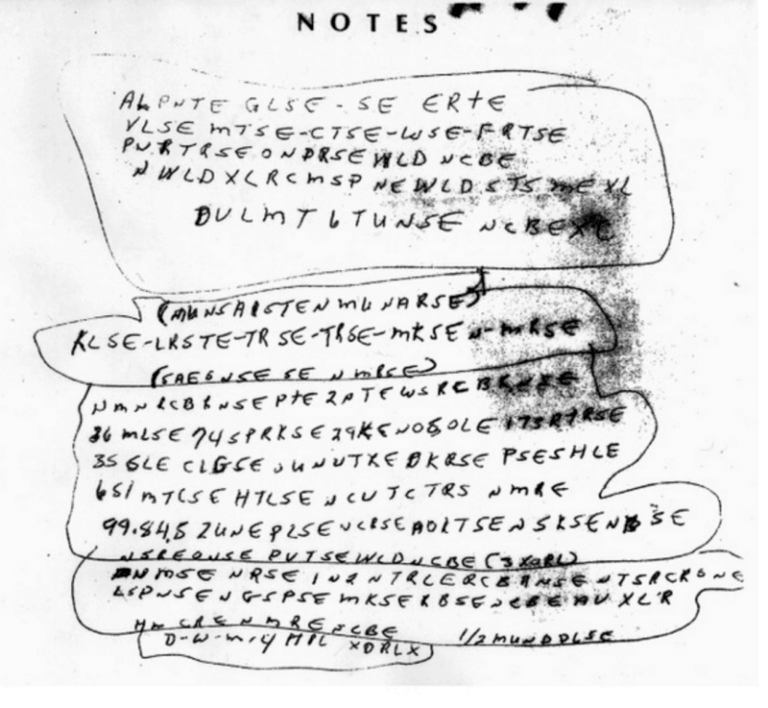 NOTES
ALPNTE GLSE-SE ERTE
VLSE MTSE-CTSE-WSE-FRTSE
PURTRSE ONDRSE WLD NCBE
N WLD XLRCMSP NEWLD STS ME XL
DULMT 6 TUNSE NCBE XC
(MUNSAISTEN MUNARSE)
KLSE-LRSTE-TRSE-TRSE-MKSEN-MRSE
(SAEGNSE SE N MRSE)
NMNRCBRNSE PTE 2 PTE WSRCBRNSE
36 MLSE 74 SPRKSE 29 KENOSOLE 173 RTRSE
35 GLE CLGSE UUNUTXE DKRSE PSESHLE
651 MTCSE HTLSE NCUTCTRS NMRE
99.84.5 2UNE PLSE NCRSE AOLTSE NSKSE N SE
NSREONSE PUTSE WLD NCBE (3 XORL)
NMSE NRSE IN2 NTRLERCBRNSE NTSRCRONE
LSPNSE NGSPSE MKSERBSE NCBE AU XL R
HM CRE NMRE NCBE 1/2 MUNDDLSE
D-W-M-4 MPL XDRLX